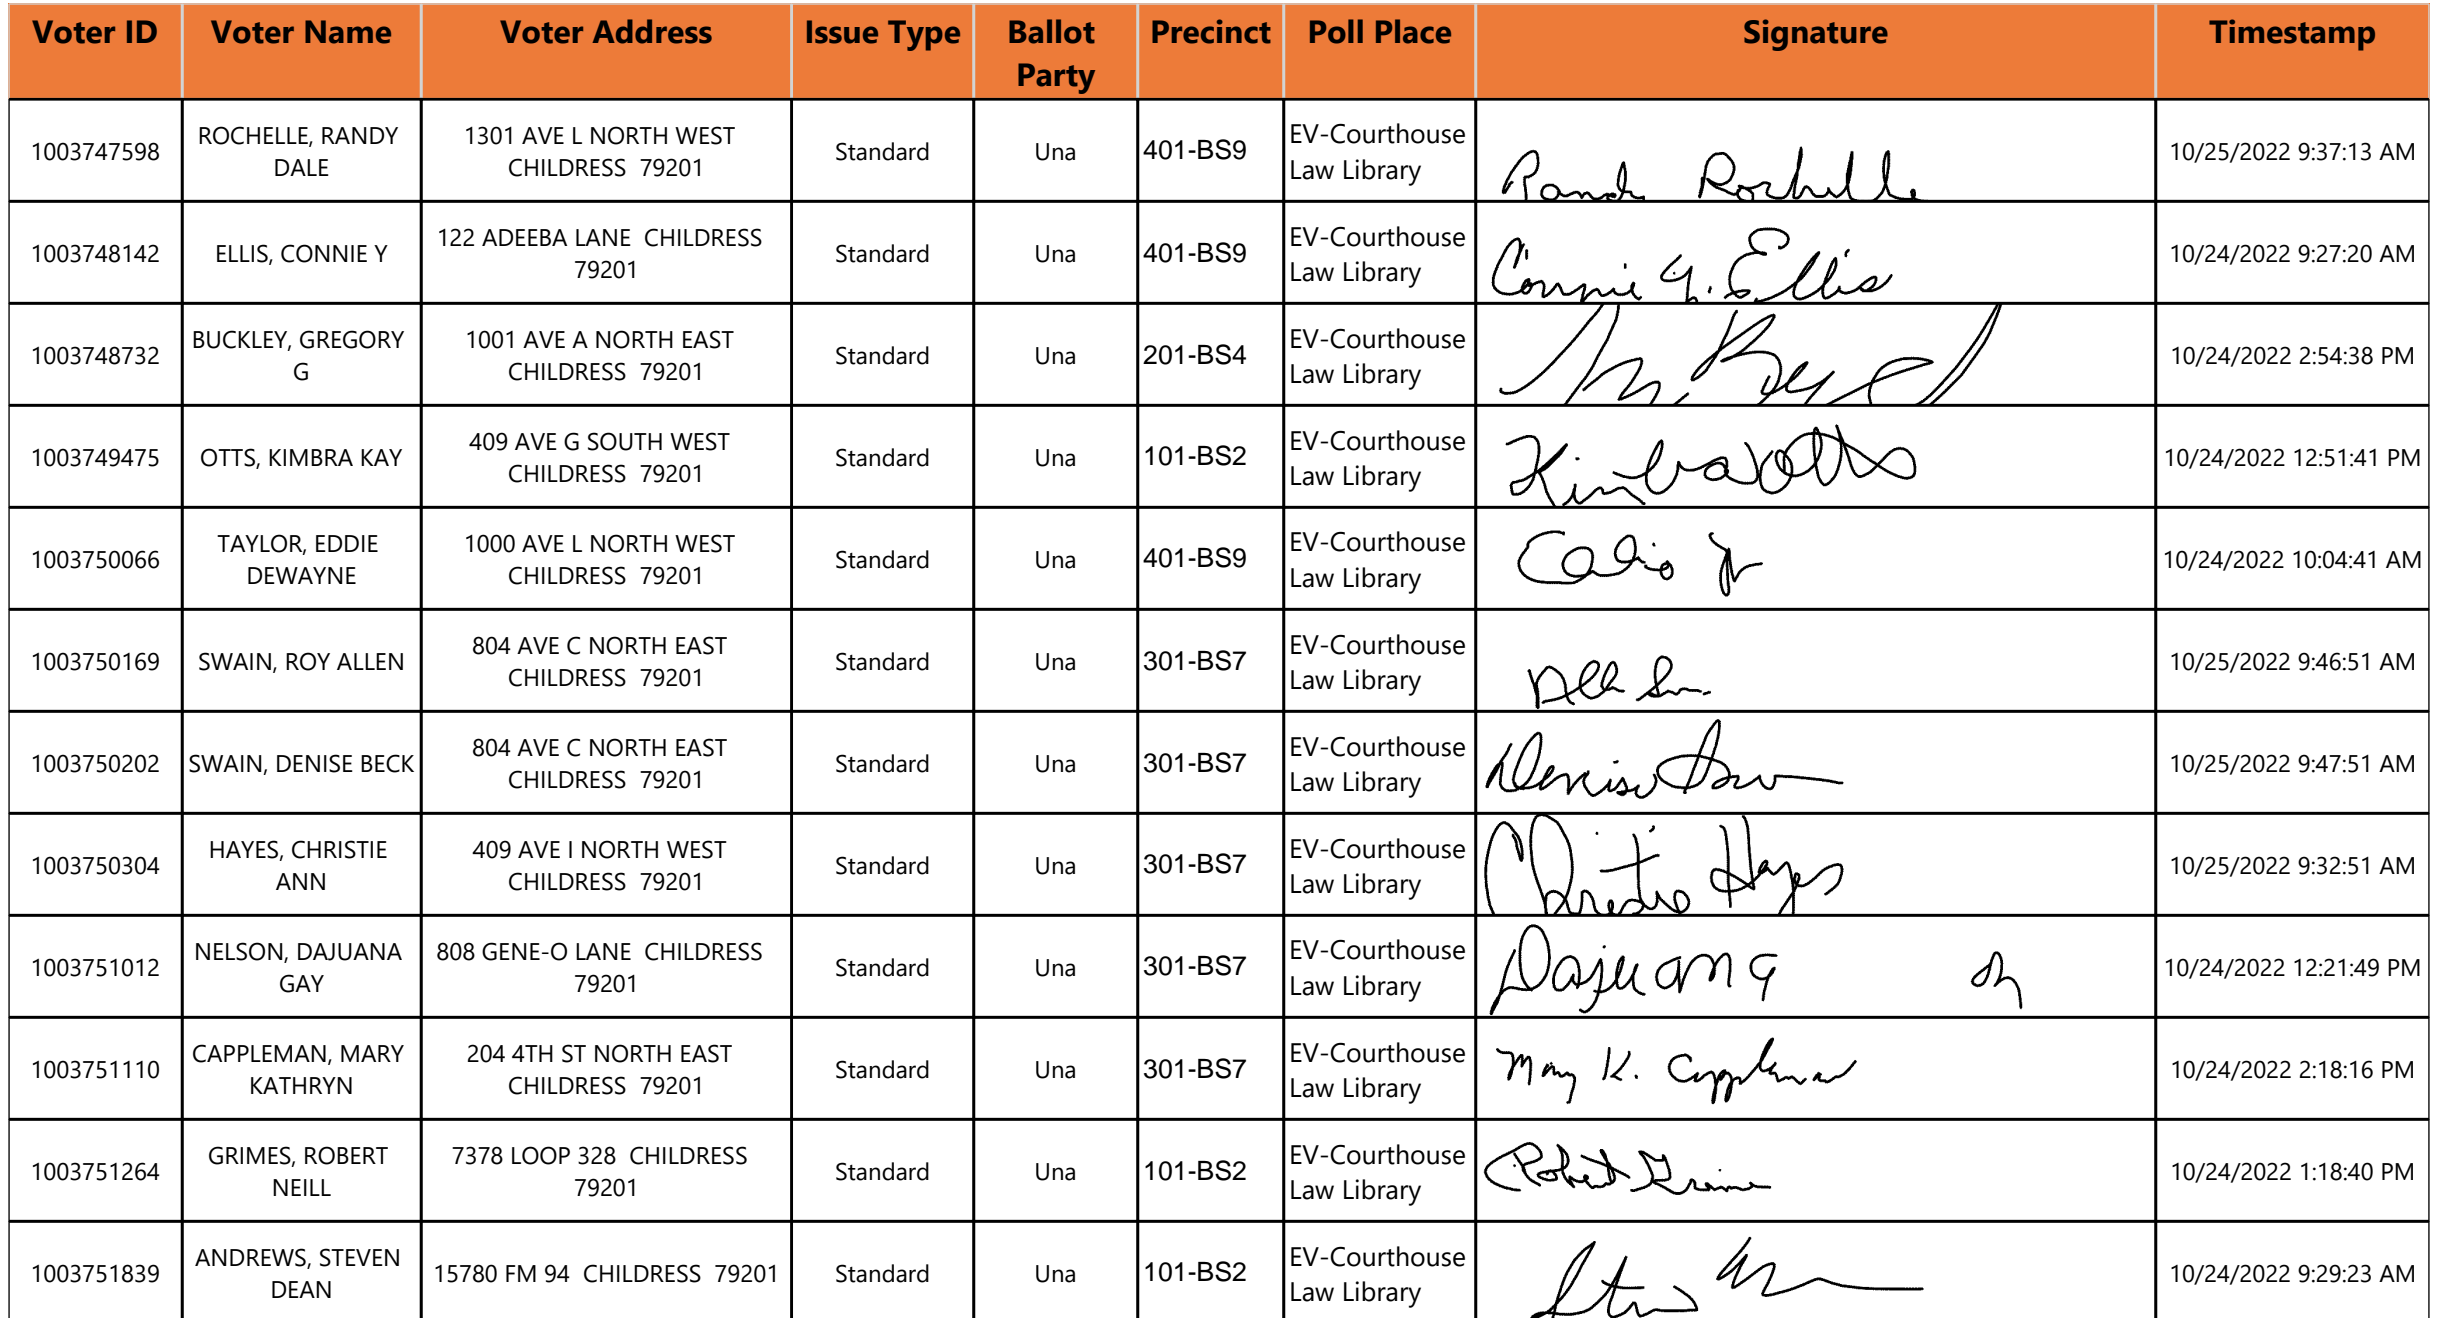 Voter ID Voter Name Voter Address Issue Type Ballot Party Precinct Poll Place Signature Timestamp
1003747598 ROCHELLE, RANDY DALE 1301 AVE L NORTH WEST CHILDRESS 79201 Standard Una 401-BS9 EV-Courthouse Law Library Rochelle 10/25/2022 9:37:13 AM
1003748142 ELLIS, CONNIE Y 122 ADEEBA LANE CHILDRESS 79201 Standard Una 401-BS9 EV-Courthouse Law Library Connie Y. Ellis 10/24/2022 9:27:20 AM
1003748732 BUCKLEY, GREGORY G 1001 AVE A NORTH EAST CHILDRESS 79201 Standard Una 201-BS4 EV-Courthouse Law Library 10/24/2022 2:54:38 PM
1003749475 OTTS, KIMBRA KAY 409 AVE G SOUTH WEST CHILDRESS 79201 Standard Una 101-BS2 EV-Courthouse Law Library Kimbra Otts 10/24/2022 12:51:41 PM
1003750066 TAYLOR, EDDIE DEWAYNE 1000 AVE L NORTH WEST CHILDRESS 79201 Standard Una 401-BS9 EV-Courthouse Law Library 10/24/2022 10:04:41 AM
1003750169 SWAIN, ROY ALLEN 804 AVE C NORTH EAST CHILDRESS 79201 Standard Una 301-BS7 EV-Courthouse Law Library 10/25/2022 9:46:51 AM
1003750202 SWAIN, DENISE BECK 804 AVE C NORTH EAST CHILDRESS 79201 Standard Una 301-BS7 EV-Courthouse Law Library Denise 10/25/2022 9:47:51 AM
1003750304 HAYES, CHRISTIE ANN 409 AVE I NORTH WEST CHILDRESS 79201 Standard Una 301-BS7 EV-Courthouse Law Library Christie Hayes 10/25/2022 9:32:51 AM
1003751012 NELSON, DAJUANA GAY 808 GENE-O LANE CHILDRESS 79201 Standard Una 301-BS7 EV-Courthouse Law Library Dajuana 10/24/2022 12:21:49 PM
1003751110 CAPPLEMAN, MARY KATHRYN 204 4TH ST NORTH EAST CHILDRESS 79201 Standard Una 301-BS7 EV-Courthouse Law Library Mary K. Cappleman 10/24/2022 2:18:16 PM
1003751264 GRIMES, ROBERT NEILL 7378 LOOP 328 CHILDRESS 79201 Standard Una 101-BS2 EV-Courthouse Law Library Robert 10/24/2022 1:18:40 PM
1003751839 ANDREWS, STEVEN DEAN 15780 FM 94 CHILDRESS 79201 Standard Una 101-BS2 EV-Courthouse Law Library 10/24/2022 9:29:23 AM